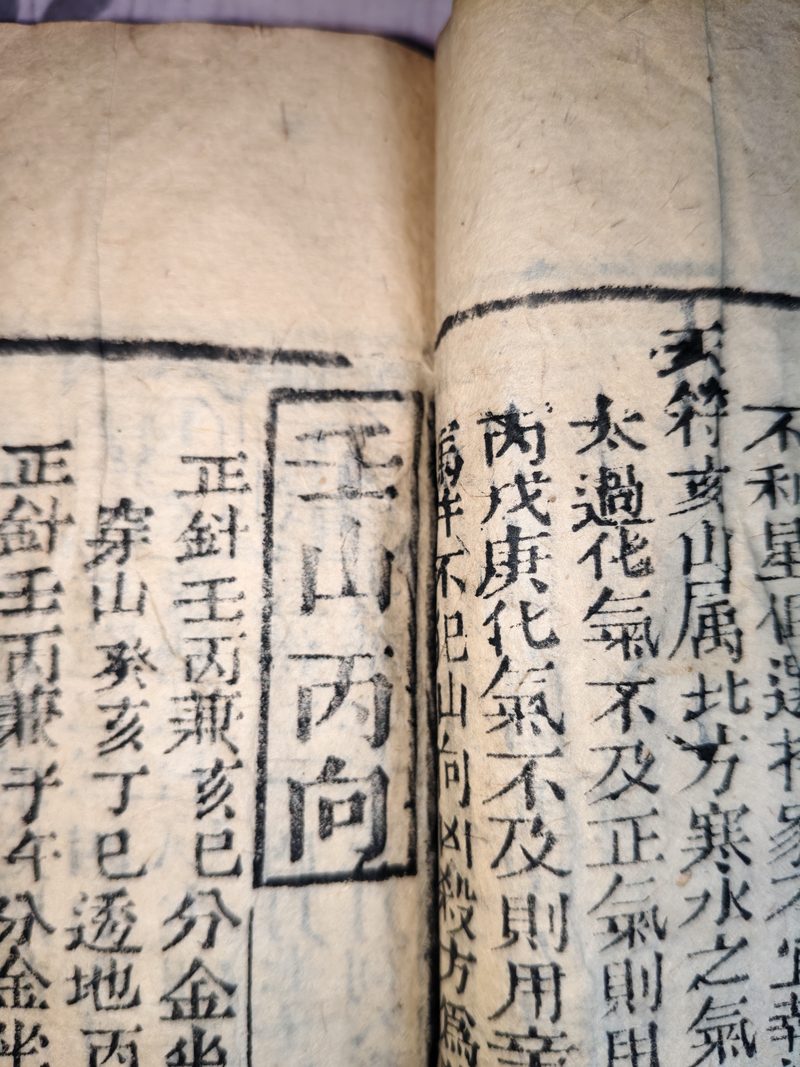 不利星選家不宜
符亥山属北方寒水之氣
太過化氣不及正氣則用
丙戊庚化氣不及則用辛
不犯山向凶殺方為
壬山丙向
正針壬丙兼亥巳分金坐
穿山癸亥丁巳透地丙
正針壬丙兼子午分金坐